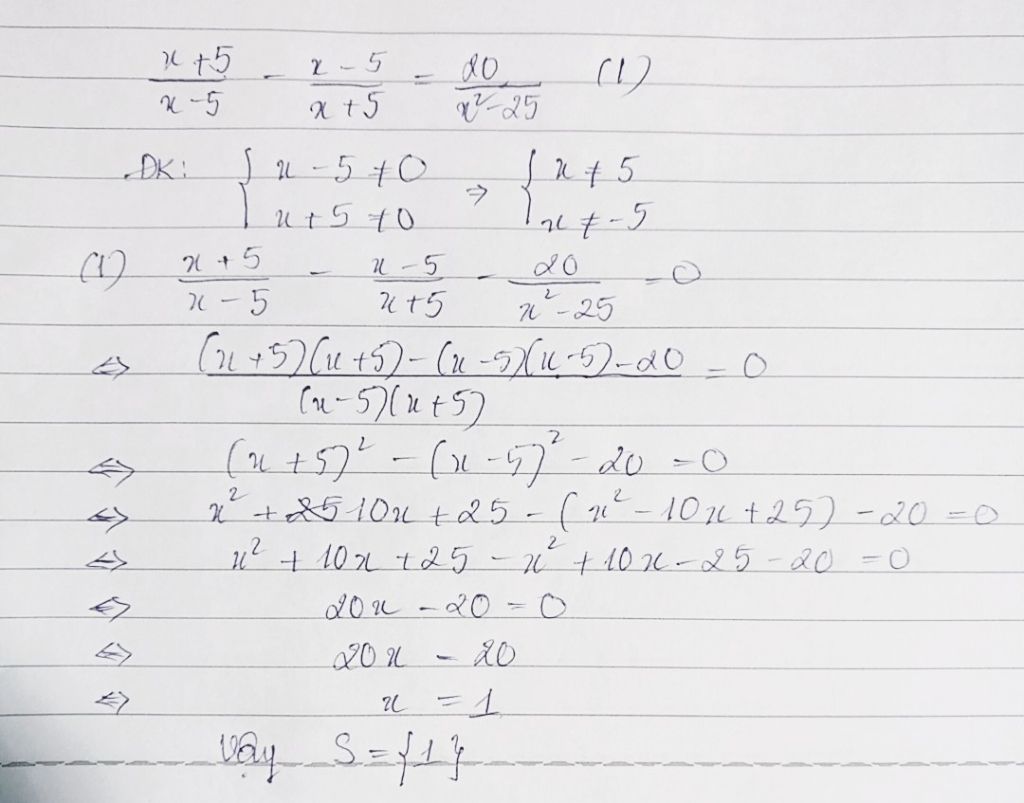 x+5/x-5 - x-5/x+5 = 20/x²-25 (1)
ĐK: { x-5≠0 x+5≠0 ⇒ { x≠5 x≠-5
(1) x+5/x-5 - x-5/x+5 - 20/x²-25 = 0
⇔ (x+5)(x+5)-(x-5)(x-5)-20/(x-5)(x+5) = 0
⇔ (x+5)² - (x-5)² - 20 = 0
⇔ x² + 10x + 25 - (x² - 10x + 25) - 20 = 0
⇔ x² + 10x + 25 - x² + 10x - 25 - 20 = 0
⇔ 20x - 20 = 0
⇔ 20x = 20
⇔ x = 1
Vậy S = {1}